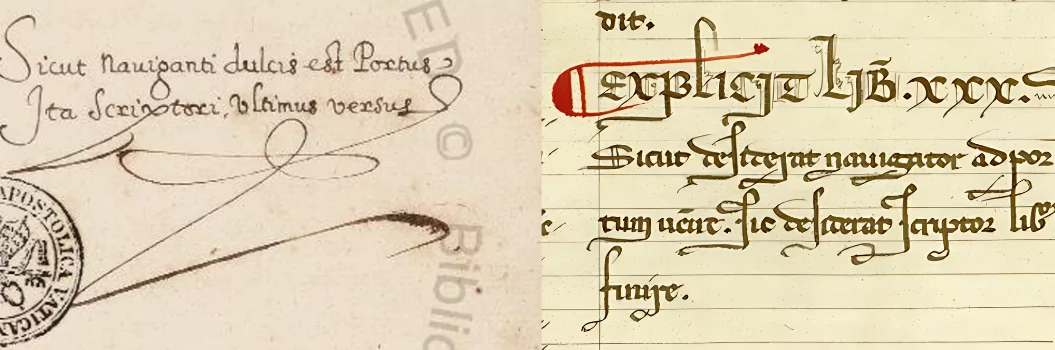 Sicut naviganti dulcis est Portus
Ita Scriptori, Vltimus versus
APOSTOLICA VATICAN
ED ©
Biblio
dit.
EXPLICIT LIB̄. XXX.
Sicut desiderat nauigator ad por
tum uēire. sic desiderat scriptor lib
finire.